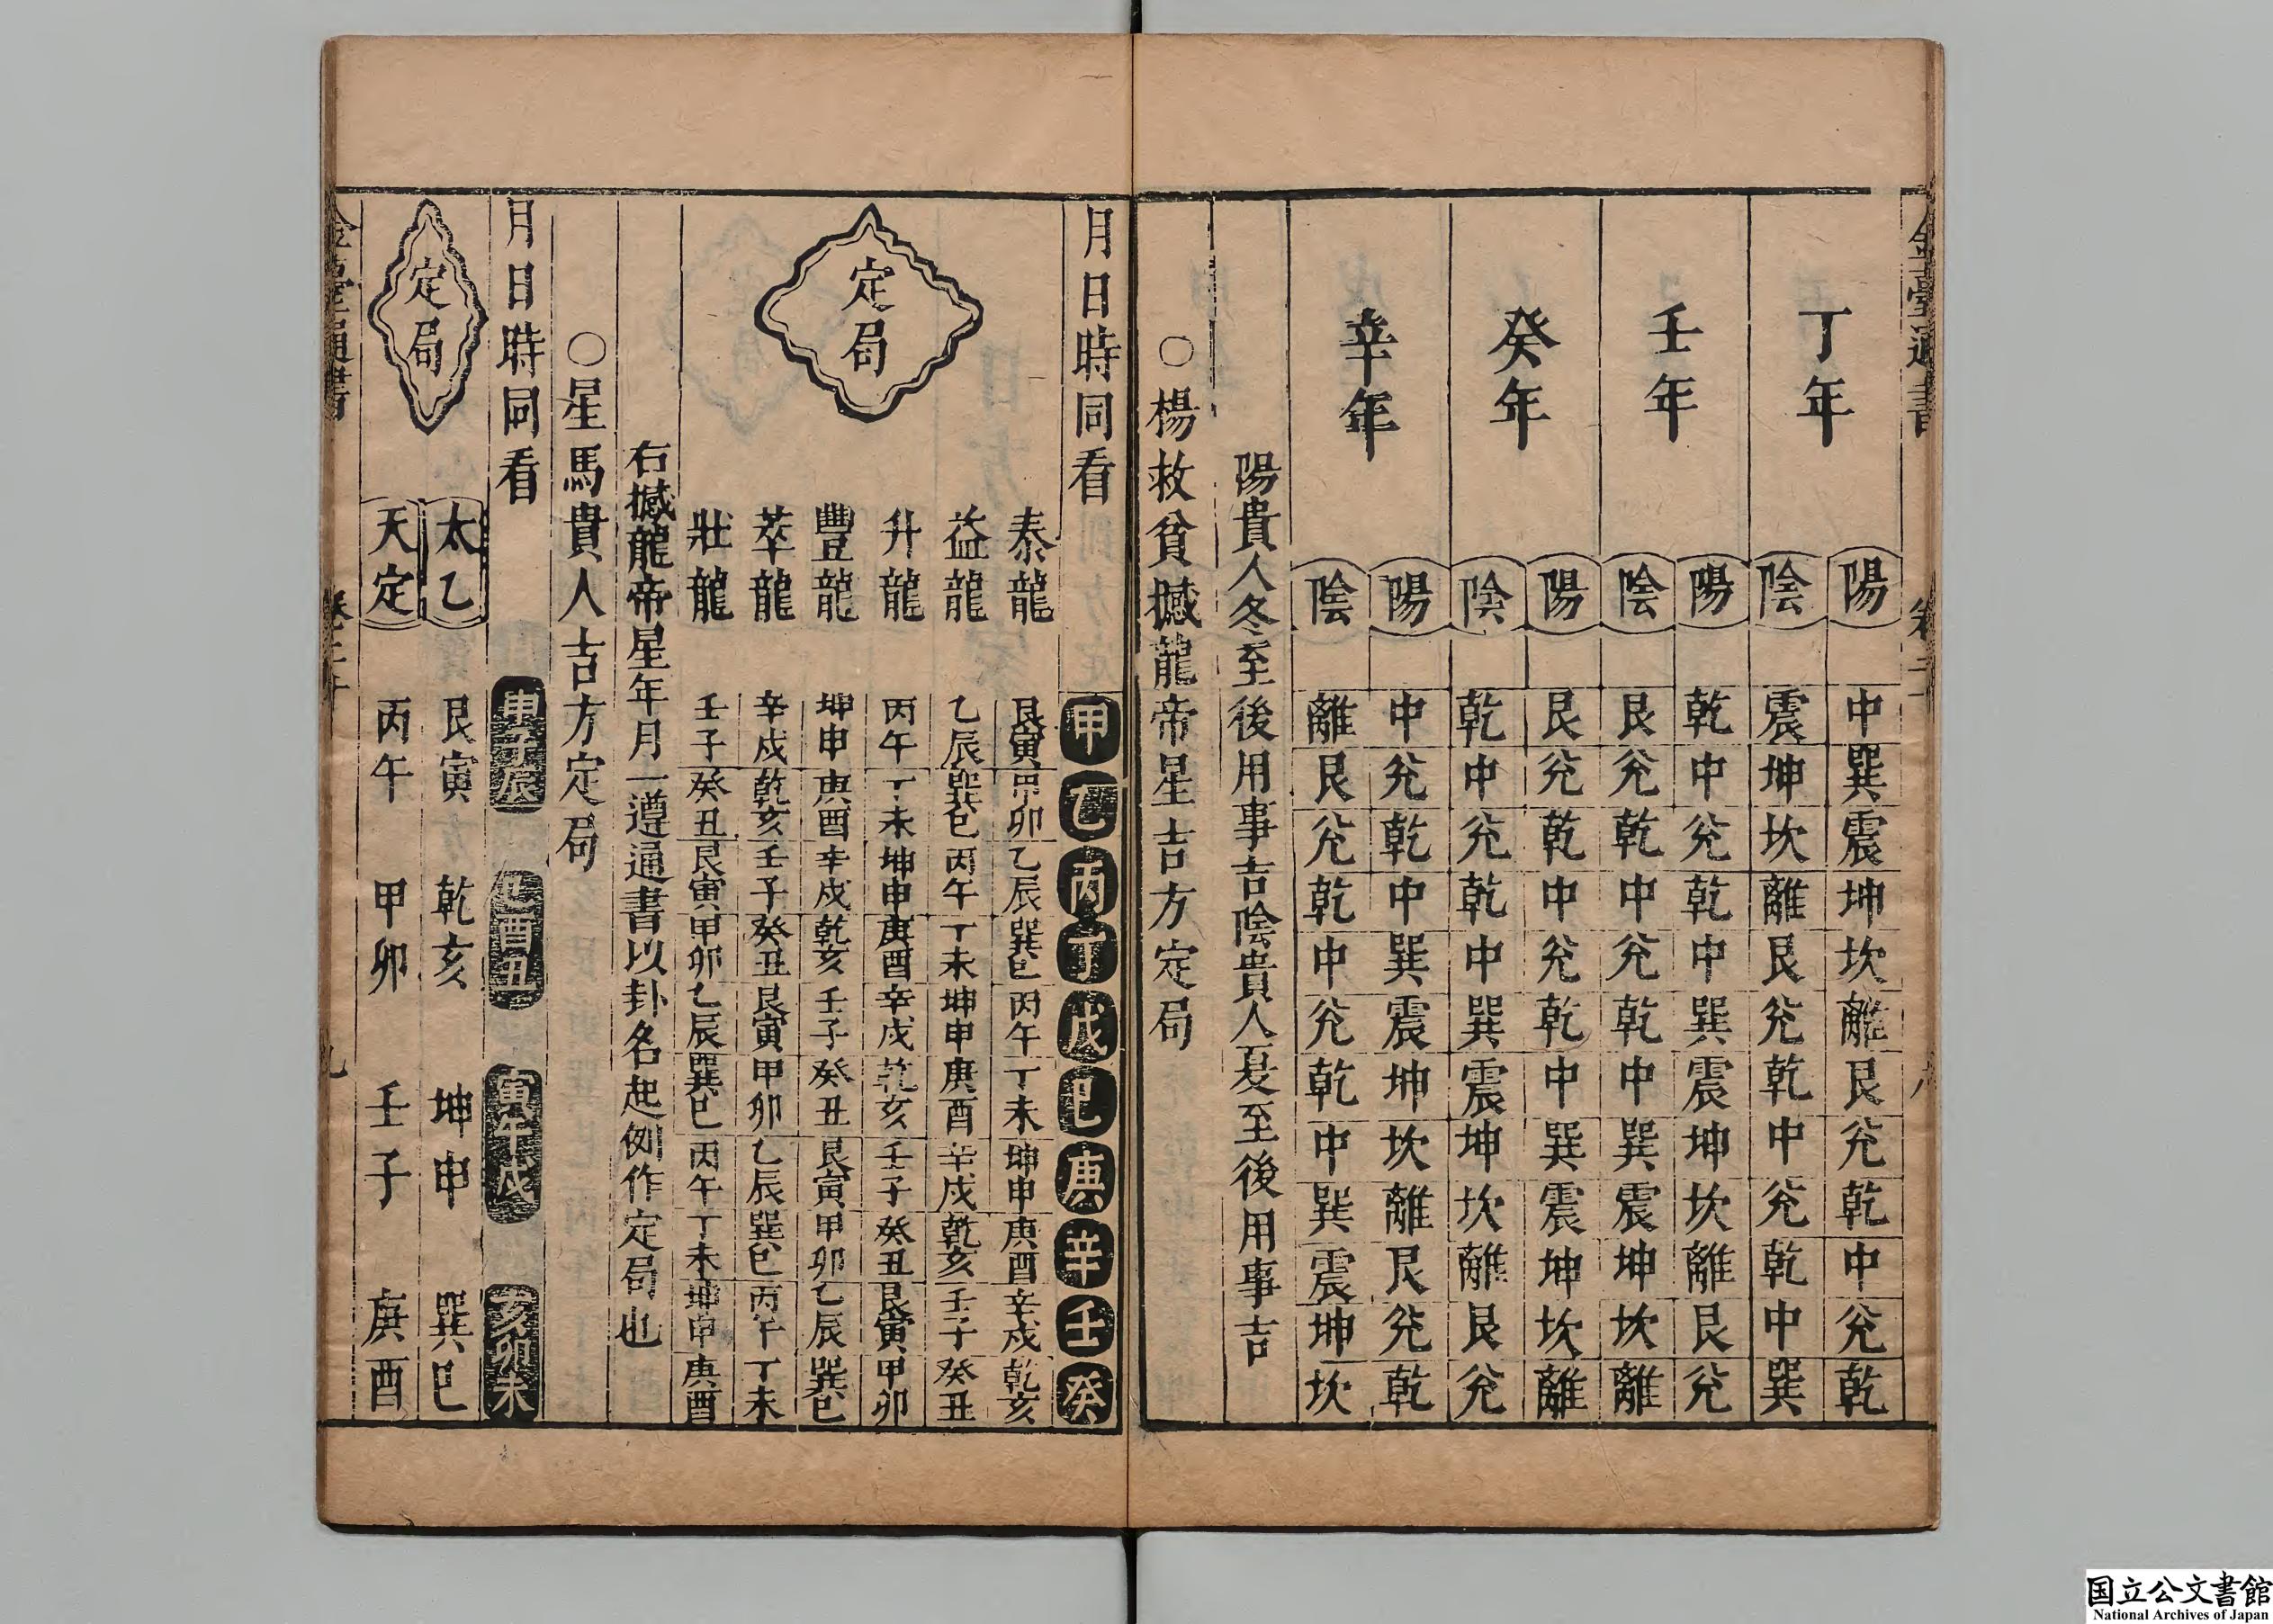 丁年
陽 中巽震坤坎離艮兊乾中兊乾
陰 震坤坎離艮兊乾中兊乾中巽
壬年
陽 乾中兊乾中巽震坤坎離艮兊
陰 艮兊乾中兊乾中巽震坤坎離
癸年
陽 艮兊乾中兊乾中巽震坤坎離
陰 乾中兊乾中巽震坤坎離艮兊
辛年
陽 中兊乾中巽震坤坎離艮兊乾
陰 離艮兊乾中兊乾中巽震坤坎
陽貴人冬至後用事吉陰貴人夏至後用事吉
○楊救貧撼龍帝星吉方定局
月日時同看 甲乙丙丁戊己庚辛壬癸
定局
泰龍 艮寅甲卯乙辰巽巳丙午丁未坤申庚酉辛戌乾亥
益龍 乙辰巽巳丙午丁未坤申庚酉辛戌乾亥壬子癸丑
升龍 丙午丁未坤申庚酉辛戌乾亥壬子癸丑艮寅甲卯
豐龍 坤申庚酉辛戌乾亥壬子癸丑艮寅甲卯乙辰巽巳
萃龍 辛戌乾亥壬子癸丑艮寅甲卯乙辰巽巳丙午丁未
壯龍 壬子癸丑艮寅甲卯乙辰巽巳丙午丁未坤申庚酉
右撼龍帝星年月一遵通書以卦名起例作定局也
○星馬貴人吉方定局
月日時同看 申子辰 巳酉丑 寅午戌 亥卯未
定局
太乙 艮寅 乾亥 坤申 巽巳
天定 丙午 甲卯 壬子 庚酉
国立公文書館
National Archives of Japan